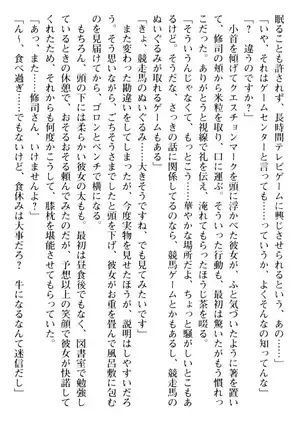 眠ることも許されず、長時間テレビゲームに興じさせられるという、あの……」
「いや、それはゲームセンターと言っても……っていうか、よくそんなの知ってんな」
「？　違うのですか？」
小首を傾げてクエスチョンマークを頭に浮かべた彼女が、ふと気づいたように箸を置い
て、修司の頬から米粒を取り、口に運ぶ。そういった行動も、最初は驚いたがもう慣れっ
こだった。ありがとうと視線で礼を伝え、淹れてもらったほうじ茶を啜る。
「そういうんじゃなくて、もっとこう……華やかな場所だよ、ちょっと騒がしいとこもあ
るけど。そうだな、さっきの話に関係してるのなら、競馬ゲームとかもあるし、競走馬の
ぬいぐるみが取れるゲームもある」
「きょ、競走馬のぬいぐるみ……大きそうですね、でも見てみたいです……」
また変わった勘違いをしてしまったが、今度実物を見せたほうが、説明はしやすいだろ
う。そう思いながら、ごちそうさまでしたと頭を下げ、彼女がお重を畳んで風呂敷に包む
のを見届けてから、ゴロンとベンチで横になる。
もちろん、頭の下には柔らかい彼女の太もも。最初は昼食後でもなく、図書室で勉強し
ているときの休憩で、おそるおそる頼んでみたのだが、予想以上の笑顔で彼女が快諾して
くれたため、それからも何度かこうして、膝枕を堪能させてもらっていた。
「あ、また……修司さん、いけませんよ？」
「んー、食べ過ぎ……でもないけど、食休みは大事だろ？　牛になるなんて迷信だし」